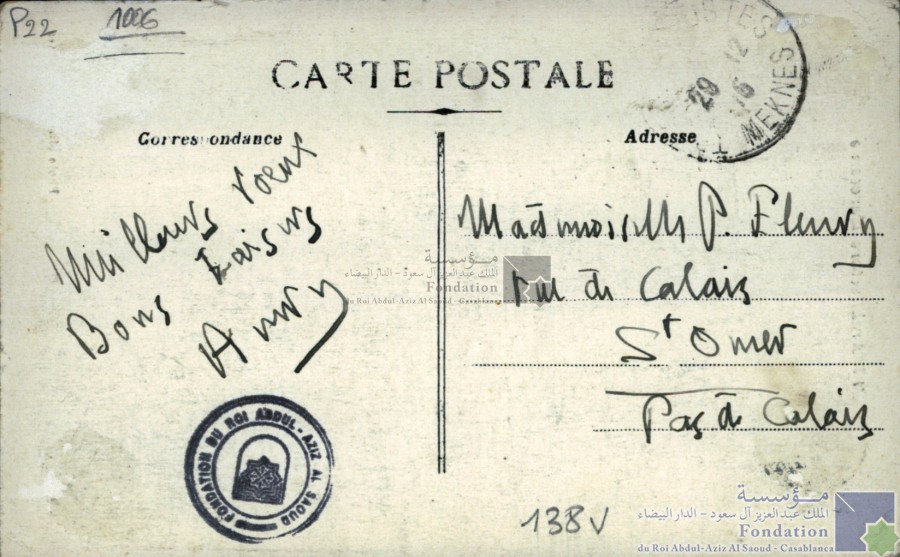 P22
1006
CARTE POSTALE
Correspondance
Adresse
POSTES
29 12
MEKNES
Meilleurs voeux
Bons Baisers
Mademoiselle P. Fleury
Rue de Calais
St Omer
Pas de Calais
مؤسسة
الملك عبدالعزيز آل سعود - الدار البيضاء
Fondation
du Roi Abdul-Aziz Al Saoud - Casablanca
FONDATION DU ROI ABDUL-AZIZ AL SAOUD
138V
مؤسسة
الملك عبدالعزيز آل سعود - الدار البيضاء
Fondation
du Roi Abdul-Aziz Al Saoud - Casablanca